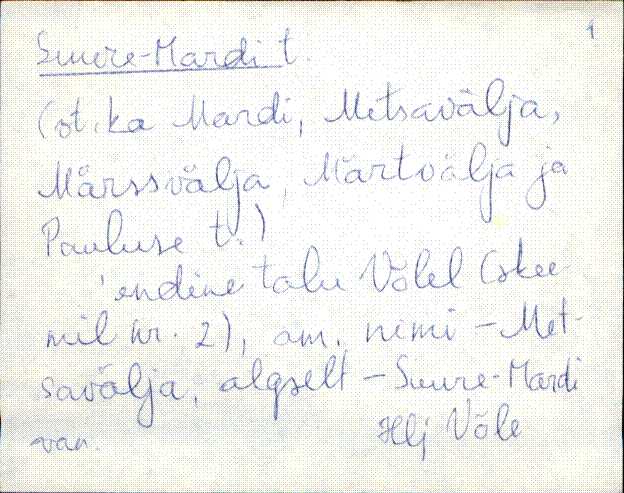 1
Suure-Mardi t.
(vt. ka Mardi, Metsavälja,
Märssvälja, Märtvälja ja
Pauluse t.)
'endine talu Võlel (skee-
mil nr. 2), am. nimi - Met-
savälja, algselt - Suure-Mardi
van. Hlj Võle